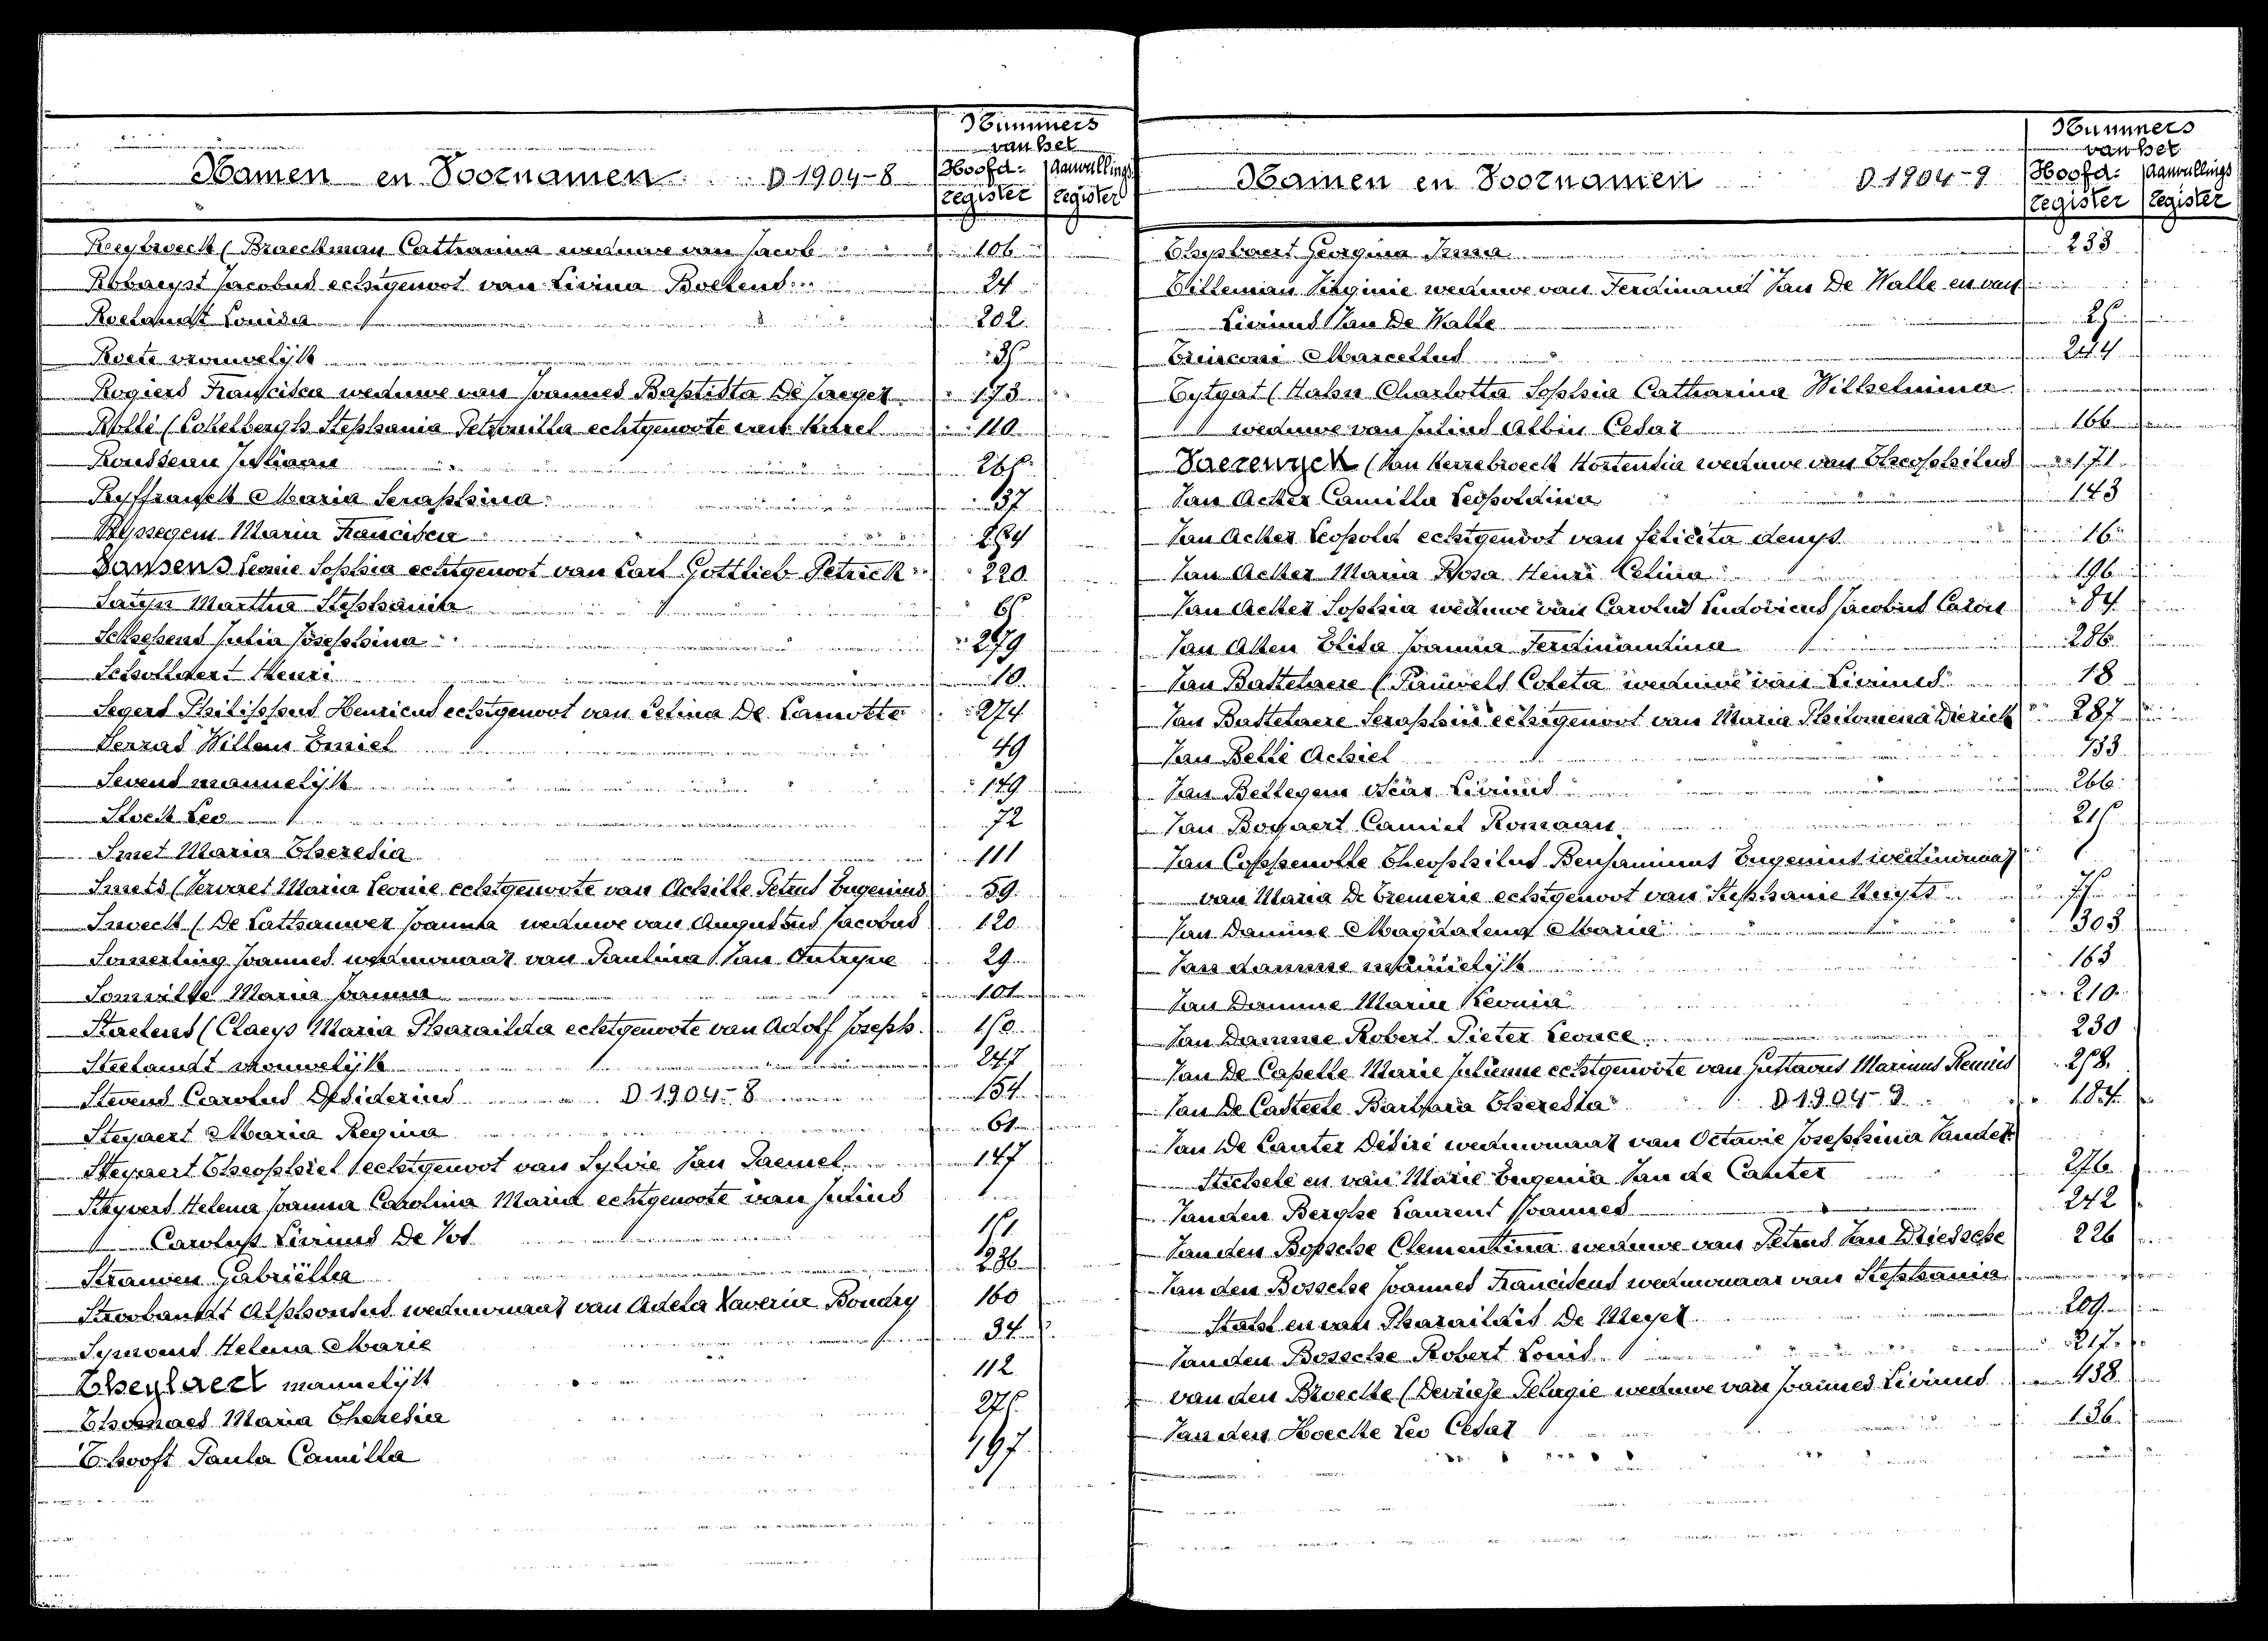 Nummers
van het
Namen en Voornamen D 1904-8 Hoofd- Aanvullings
register register
Reybroeck (Braeckman Catharina weduwe van Jacob 106
Robaeyst Jacobus echtgenoot van Livina Boelens 24
Roelandt Louisa 202
Roete vrouwelijk
Rogiers Francisca weduwe van Joannes Baptista De Jaeger 173
Rollé (Eckelbergh Stephania Petronilla echtgenoote van Karel 110
Rousseau Juliaan
Ryffranck Maria Seraphina 137
Ryssegem Maria Francisca
Sansens Leonie Sophia echtgenoot van Carl Gottlieb Petrick 220
Martha Stephanie
Schepens Julia Josephina 279
Schollaert Henri 10
Segers Philippus Henricus echtgenoot van Celina De Lamotte 274
Serras Willem Emiel 49
Sevens mannelijk 179
Sloeck Leo 72
Smet Maria Theresia 111
Smets (Servaet Maria Leonie echtgenoote van Achille Petrus Eugenius 59
Snoeck (De Cathauwer Joanna weduwe van Augustus Jacobus 120
Somerling Joannes weduwnaar van Paulina Van Outryve 29
Somville Maria Joanna 101
Staelens (Claeys Maria Pharaïlda echtgenoote van Adolf Joseph 150
Steelandt vrouwelijk 247
Stevens Carolus Desiderius D 1904-8 154
Steyaert Maria Regina 61
Steyaert Theophiel echtgenoot van Sylvie Van Daemel 147
Steyvers Helena Joanna Carolina Maria echtgenoote van Julius
Carolus Livinus De Vos 151
Strauwen Gabriëlla 236
Stroobandt Alphonsus weduwnaar van Adela Xaverine Boudry 160
Symoens Helena Marie 34
Theylaert mannelijk 112
Thomaes Maria Theresia 275
T'hooft Paula Camilla 197
Nummers
van het
Namen en Voornamen D 1904-9 Hoofd- Aanvullings
register register
Thyslaert Georgina Irma 233
Tilleman Virginie weduwe van Ferdinand Van De Walle en van
Livinus Van De Walle 25
Marcellus 244
Tytgat (Hahn Charlotta Sophia Catharina Wilhelmina
weduwe van Julius Albin Cesar 166
Vaerewyck (Van Kerrebroeck Hortentia weduwe van Theophilus 171
Van Acker Camilla Leopoldina 143
Van Acker Leopold echtgenoot van Felicita denys 16
Van Acker Maria Rosa Henri Celina 196
Van Acker Sophia weduwe van Carolus Ludovicus Jacobus Calon 84
Van Alten Elisa Joanna Ferdinandina 286
Van Battelaere (Pauwels Coleta weduwe van Livinus 18
Van Battelaere Seraphin echtgenoot van Maria Philomena Dierick 287
Van Belle Achiel 133
Van Bellegem Oscar Livinus 266
Van Bogaert Camiel Romaan 215
Van Coppenolle Theophilus Benjaminus Eugenius weduwnaar
van Maria De Cremerie echtgenoot van Stephanie Huyts
Van Damme Magdalena Maria 303
Van damme mannelijk 163
Van Damme Maria Leonia 210
Van Damme Robert Pieter Leonce 230
Van De Capelle Marie Julienne echtgenoote van Gustavus Marinus Remies 258
Van De Casteele Barbara Theresia D 1904-9 184
Van De Canter Désiré weduwnaar van Octavie Josephina Vander
Stichele en van Marie Eugenia Van de Canter 276
Vanden Berghe Laurent Joannes 242
Vanden Bossche Clementina weduwe van Petrus Van Driessche 226
Van den Bossche Joannes Franciscus weduwnaar van Stephania
Stahl en van Pharaildis De Meyer 209
Vanden Bossche Robert Louis 217
van den Broecke (Devriese Pelagie weduwe van Joannes Livinus 138
Van den Hoecke Leo Cesar 136